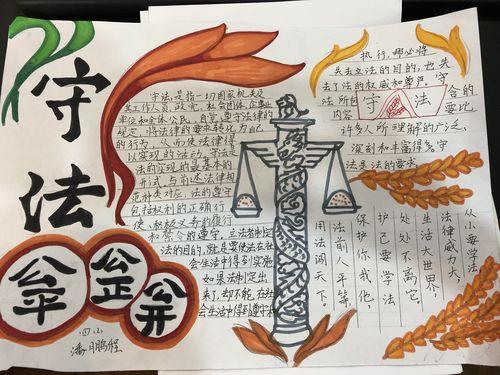 守法
公平
公正
公开
四(1)
潘月鹏程
守法,是指一切国家机关及
其工作人员,政党,社会团体,企事业
单位和全体公民,自觉遵守法律的
规定,将法律的要求转化为自己
的行为,从而使法律得
以实现的活动。守法是
法的实现的最基本的
形式,与司法法律规
范种类对应,法的遵守
包括权利的正确行
使,积极义务的履行
和禁令的遵守。立法者制定
法的目的,就是要使法在社
会生活中得到实施
如果法制定出
来了,却不能在社
会生活中得到遵守和
执行,那必将
失去立法的目的,也失
去了法的权威和尊严。守
法所包含的要比
内容
守法
许多人所理解的广泛,
深刻和丰富得多守
法是法的要求
从小要学法
法律威力大,
生活大世界,
处处不离它。
护己要学法
保护你我他,
法前人平等,
用法闯天下。